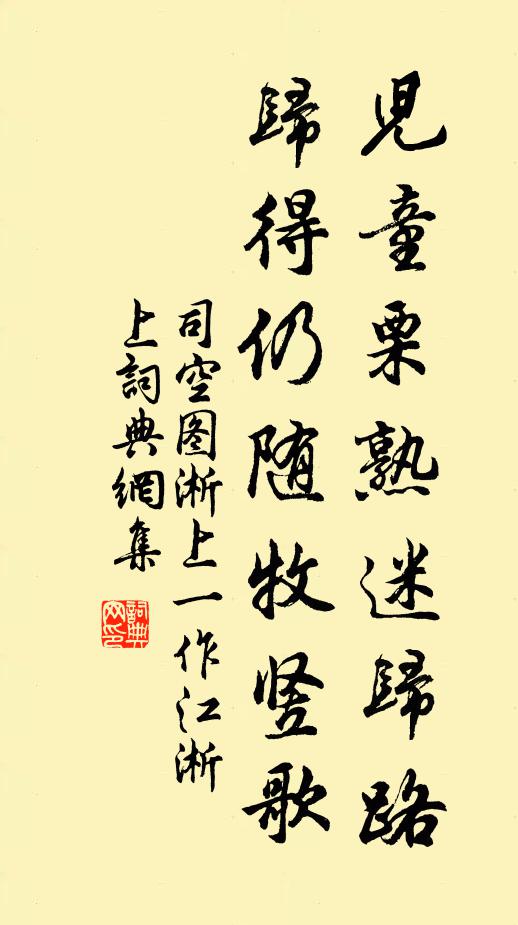 兒童栗熟迷歸路
歸得仍随牧竖歌
司空图淅上一作江淅
上詞典網集
詞典
网印